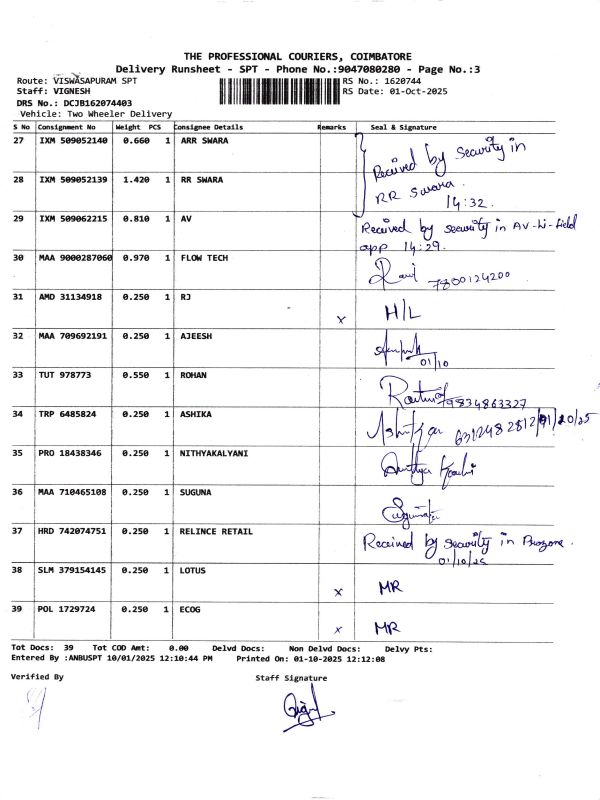 THE PROFESSIONAL COURIERS, COIMBATORE
Delivery Runsheet - SPT - Phone No.:9047080280 - Page No.:3
Route: VISWASAPURAM SPT RS No.: 1620744
Staff: VIGNESH RS Date: 01-Oct-2025
DRS No.: DCJB162074403
Vehicle: Two Wheeler Delivery
S No Consignment No Weight PCS Consignee Details Remarks Seal & Signature
27 IXM 509052140 0.660 1 ARR SWARA
Received by security in
28 IXM 509052139 1.420 1 RR SWARA
RR Swara.
14:32.
29 IXM 509062215 0.810 1 AV
Received by security in AV-hi-field
app 14:29.
30 MAA 9000287060 0.970 1 FLOW TECH
7800124200
31 AMD 31134918 0.250 1 RJ x H/L
32 MAA 709692191 0.250 1 AJEESH
01/10
33 TUT 978773 0.550 1 ROHAN
9834863327
34 TRP 6485824 0.250 1 ASHIKA
35 PRO 18438346 0.250 1 NITHYAKALYANI
36 MAA 710465108 0.250 1 SUGUNA
37 HRD 742074751 0.250 1 RELINCE RETAIL
Received by security in Prozone.
01/10/25
38 SLM 379154145 0.250 1 LOTUS x MR
39 POL 1729724 0.250 1 ECOG x MR
Tot Docs: 39 Tot COD Amt: 0.00 Delvd Docs: Non Delvd Docs: Delvy Pts:
Entered By :ANBUSPT 10/01/2025 12:10:44 PM Printed On: 01-10-2025 12:12:08
Verified By Staff Signature